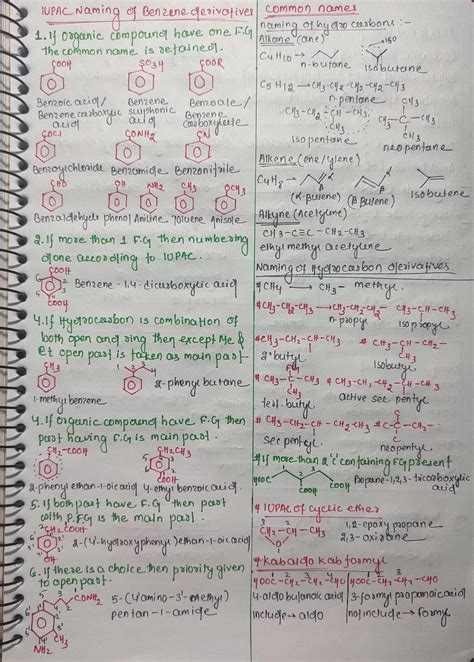 IUPAC Naming of Benzene derivatives
1. If organic compound have one F.G
the common name is retained.
COOH SO3H COOR
Benzoic acid/ Benzene Benzoate/
Benzene carboxylic sulphonic Benzene
acid acid carboxylate
COCl CONH2 CN
Benzoylchloride Benzamide Benzonitrile
CHO OH NH2 CH3 OCH3
Benzaldehyde phenol Aniline Toluene Anisole
2. If more than 1 F.G then numbering
done according to IUPAC.
COOH
Benzene-1,4-dicarboxylic acid
COOH
4. If Hydrocarbon is combination of
both open and ring then except Me &
Et open part is taken as main part.
CH3
2-phenyl butane
1-methyl benzene
4. If organic compound have F.G then
part having F.G is main part.
CH2-COOH CH2CH3
COOH
2-phenyl ethan-1-oic acid 4-ethyl benzoic acid
5. If both part have F.G then part
with P.F.G is the main part.
CH2COOH
2-(4'-hydroxyphenyl)ethan-1-oic acid
OH
6. If there is a choice then priority given
to open part.
CONH2
5-(4'amino-3'-methyl)
pentan-1-amide
CH3
NH2
Common names
naming of hydrocarbons :-
Alkane (ane)
iso
C4H10 → n-butane Isobutane
C5H12 → CH3-CH2-CH2-CH2-CH3
n pentane
CH3-CH-CH2-CH3
CH3
isopentane
CH3
CH3-C-CH3
CH3
neopentane
Alkene (ene/ylene)
C4H8 →
(α-Butene) (β Butene) Isobutene
Alkyne (Acetylene)
CH3-C≡C-CH2-CH3
ethyl methyl acetylene
Naming of Hydrocarbon derivatives
# CH4 → CH3- methyl.
# CH3-CH2-CH3 → CH3-CH2-CH2- CH3-CH-CH3
n-propyl isopropyl
# CH3-CH2-CH-CH3 # CH3-CH-CH2-
CH3
2° butyl Isobutyl
CH3
# CH3-C-CH3 # CH3-CH2-CH-CH2-
CH3
tert. butyl active sec pentyl
# CH3-CH2-CH-CH2-CH3
sec pentyl neopentyl
# If more than 2 'C' containing FG present
Propane-1,2,3-tricarboxylic
acid
COOH COOH COOH
# IUPAC of cyclic ether
CH3-CH-CH2 1,2-epoxy propane
O 2,3-oxirane
# Kab aldo kab formyl
HOOC-CH2-CH2-CHO HOOC-CH2-CH2-CHO
4-aldo butanoic acid 3-formyl propanoic acid
include → aldo not include → formyl